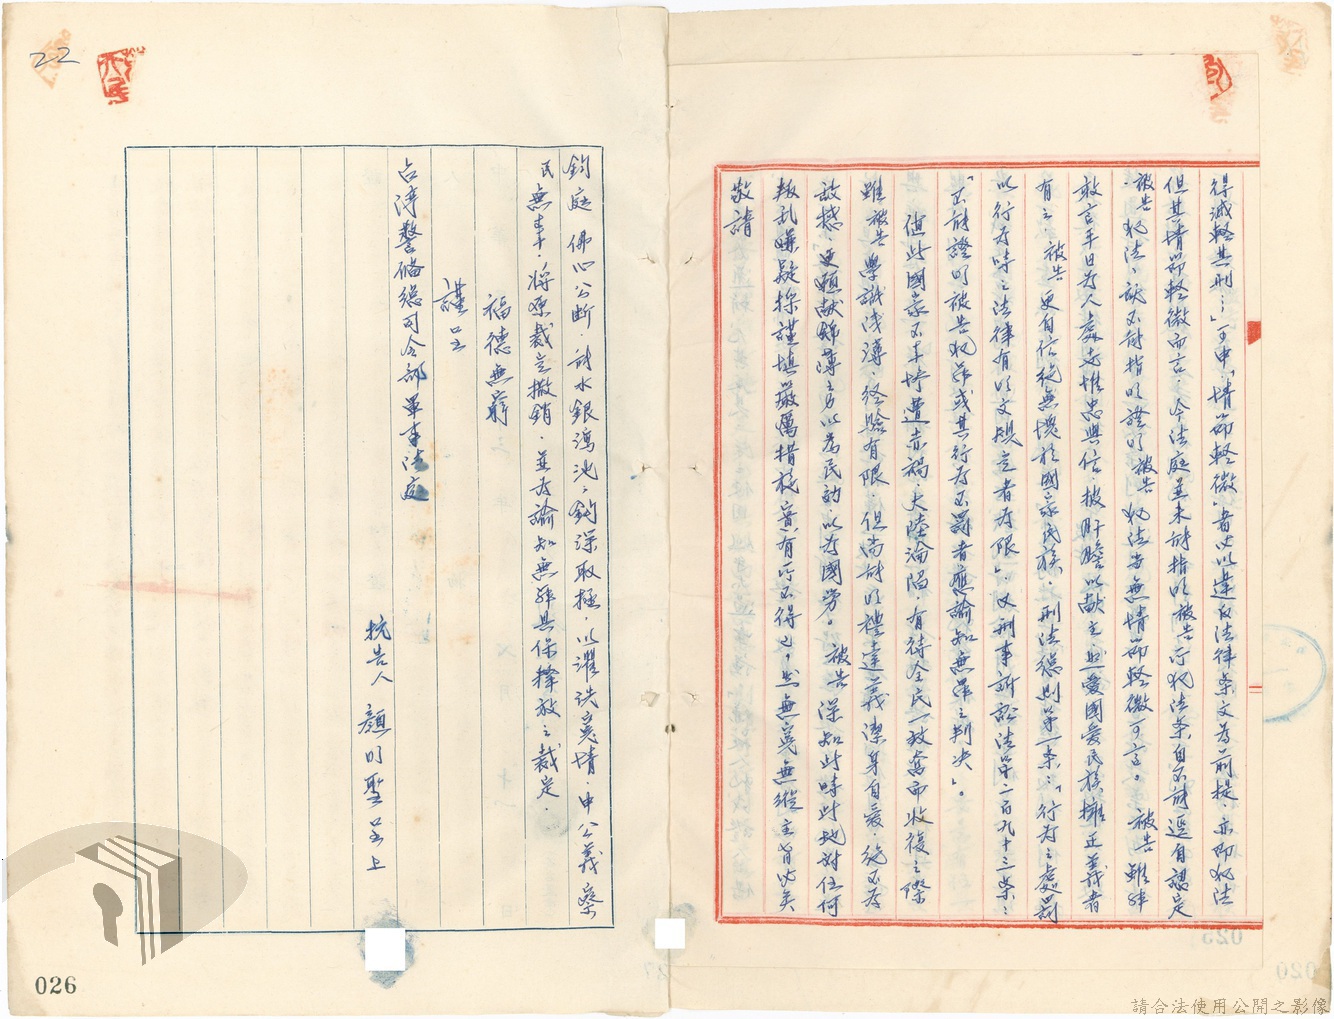 得減輕其刑…」可申「情節輕微」者必以違反法律条文為前提。亦即犯法
但其情節輕微而言。今法庭並未能指明被告所犯法条自不能逕自認定
被告犯法、既不能指明證明被告犯法當無情節輕微可言。被告雖非
敢言平日為人處世惟忠與信。披肝膽以献主、然愛國愛民族擁正義者
有之、被告更自信絶無愧於國家民族。刑法總則第一条：「行為之處罰
以行為時之法律有明文規定者為限」。又刑事訴訟法第二百九十三条：
「不能證明被告犯罪或其行為不罰者應諭知無罪之判决」。
值此國家不幸埓遭赤禍。大陸淪陷。有待全民一致奮而收復之際
雖被告學識浅薄。経驗有限。但尚能明禮達義潔身自愛。絶不為
敵惑。更願献綿薄之力以為民効。以為國勞。被告深知此時此地對任何
叛乱嫌疑採謹慎嚴厲措施實有所不得已，然無寃無縱主旨必矣
敬請
鈞庭 佛心公断。能水銀瀉池、鈎深取極。以濯洪寃情。申公義祭
民無辜。將原裁定撤銷。並為諭知無罪具保釋放之裁定。
福德無窮
謹呈
台湾警備總司令部軍事法庭
抗告人 顏明聖 呈上
22
026
025
020
27
請合法使用公開之影像